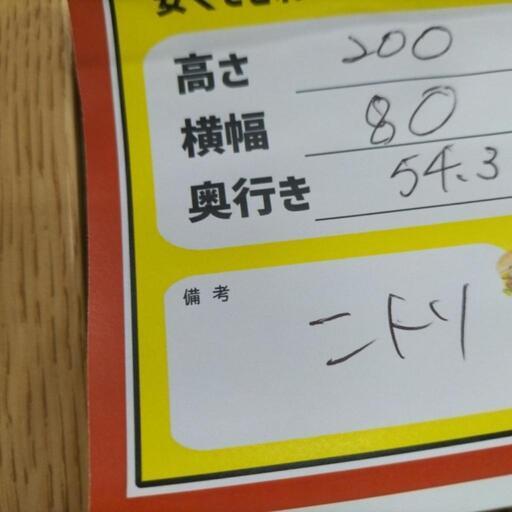 高さ 200
横幅 80
奥行き 54.3
備考
ニトリ